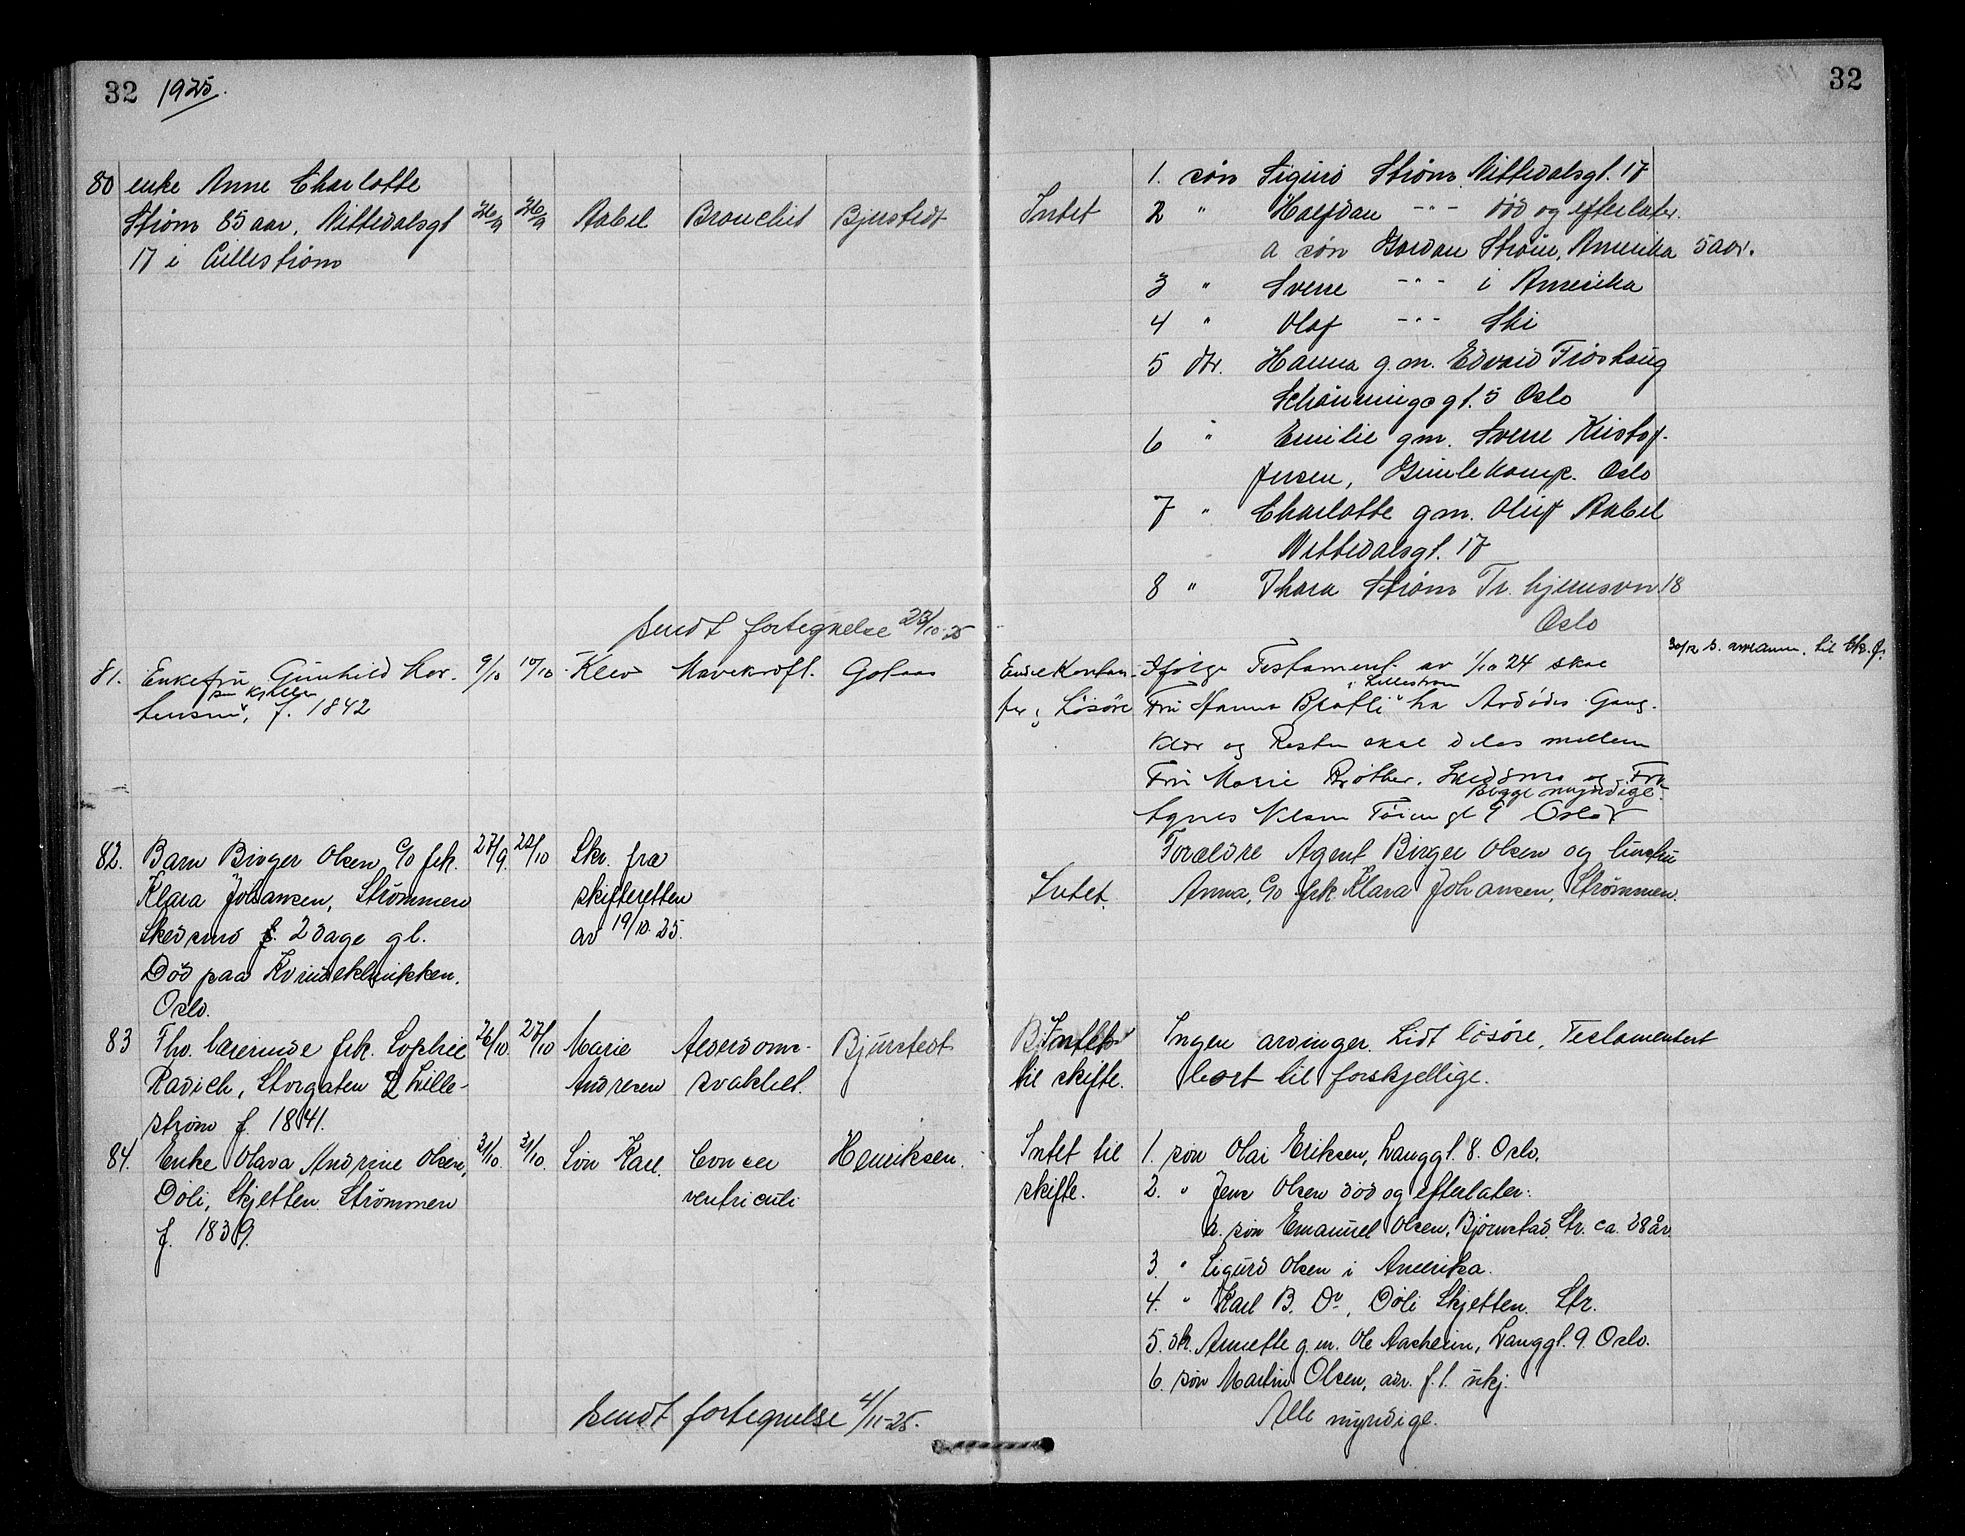 32 1925.
80 enke Anne Charlotte
Strøm 85 aar, Nittedalsgt
17 i Lillestrøm
26/9 26/9 Aabel Bronchit Bjustedt
Sendt fortegnelse 23/10-25
81. Enkefru Gunhild Lor.
paa Kjeller
tensen, f. 1842
9/10 10/10 Klev Mavekræft. Golaas
82. Barn Birger Olsen, c/o frk.
Klara Johansen, Strømmen
Skedsmo f. 2 dage gl.
Død paa Kvindeklinikken.
Oslo.
27/9. 22/10 Skr. fra
skifteretten
av 19/10 25.
83 Fhv. lærerinde frk. Sophie
Radich, Storgaten 2 Lille-
strøm f. 1841.
26/10. 27/10 Marie Alderdoms-
Andresen svakhet.
Bjustedt
84. Enke Olava Andrine Olsen,
Døli, Skjetten Strømmen
f. 1839.
31/10. 31/10. Søn Karl. Cancer
ventriculi
Henriksen.
Sendt fortegnelse 4/11-25.
32
Intet
1. søn Sigurd Strøm Nittedalsgt. 17
2 " Halfdan -"- død og efterlater.
a søn Gordan Strøm, Amerika 5 aar.
3 " Sverre -"- i Amerika
4 " Olaf -"- Ski
5 dtr. Hanna g.m. Edvard Frøshaug
Schønningsgt. 5 Oslo
6 " Emilie g.m. Sverre Kristof-
fersen, Oslo
7 " Charlotte g.m. Oluf Aabel
Nittedalsgt. 17
8 " Thora Strøm Tr. hjemsvn 18
Oslo
Endel Kontan-
ter & Løsøre
Ifølge Testament av 1/10 24 skal
i Lillestrøm
Fru Hanna Bratli ha Avdødes Gang-
klær og Resten skal deles mellem
Fru Marie Skedsmo og Fru
Begge myndige.
Agnes Nilsen Tøiengt 9 Oslo
30/12 s. til
Intet.
Forældre Agent Birger Olsen og hustru
Anna, c/o frk Klara Johansen, Strømmen.
Intet
til skifte.
Ingen arvinger. Lidt løsøre, Testamentert
bort til forskjellige.
Intet til
skifte.
1. søn Olai Eriksen, Langgt. 8. Oslo.
2. " Jens Olsen død og efterlater:
a. søn Emanuel Olsen, Bjørnstad. Str. ca. 38 år.
3. " Sigurd Olsen i Amerika.
4. " Karl B. Do., Døli Skjetten. Str.
5. dt. Annette g.m. Ole Aasheim, Langgt. 9. Oslo.
6. søn Martin Olsen, adr. f.t. ukj.
Alle myndige.